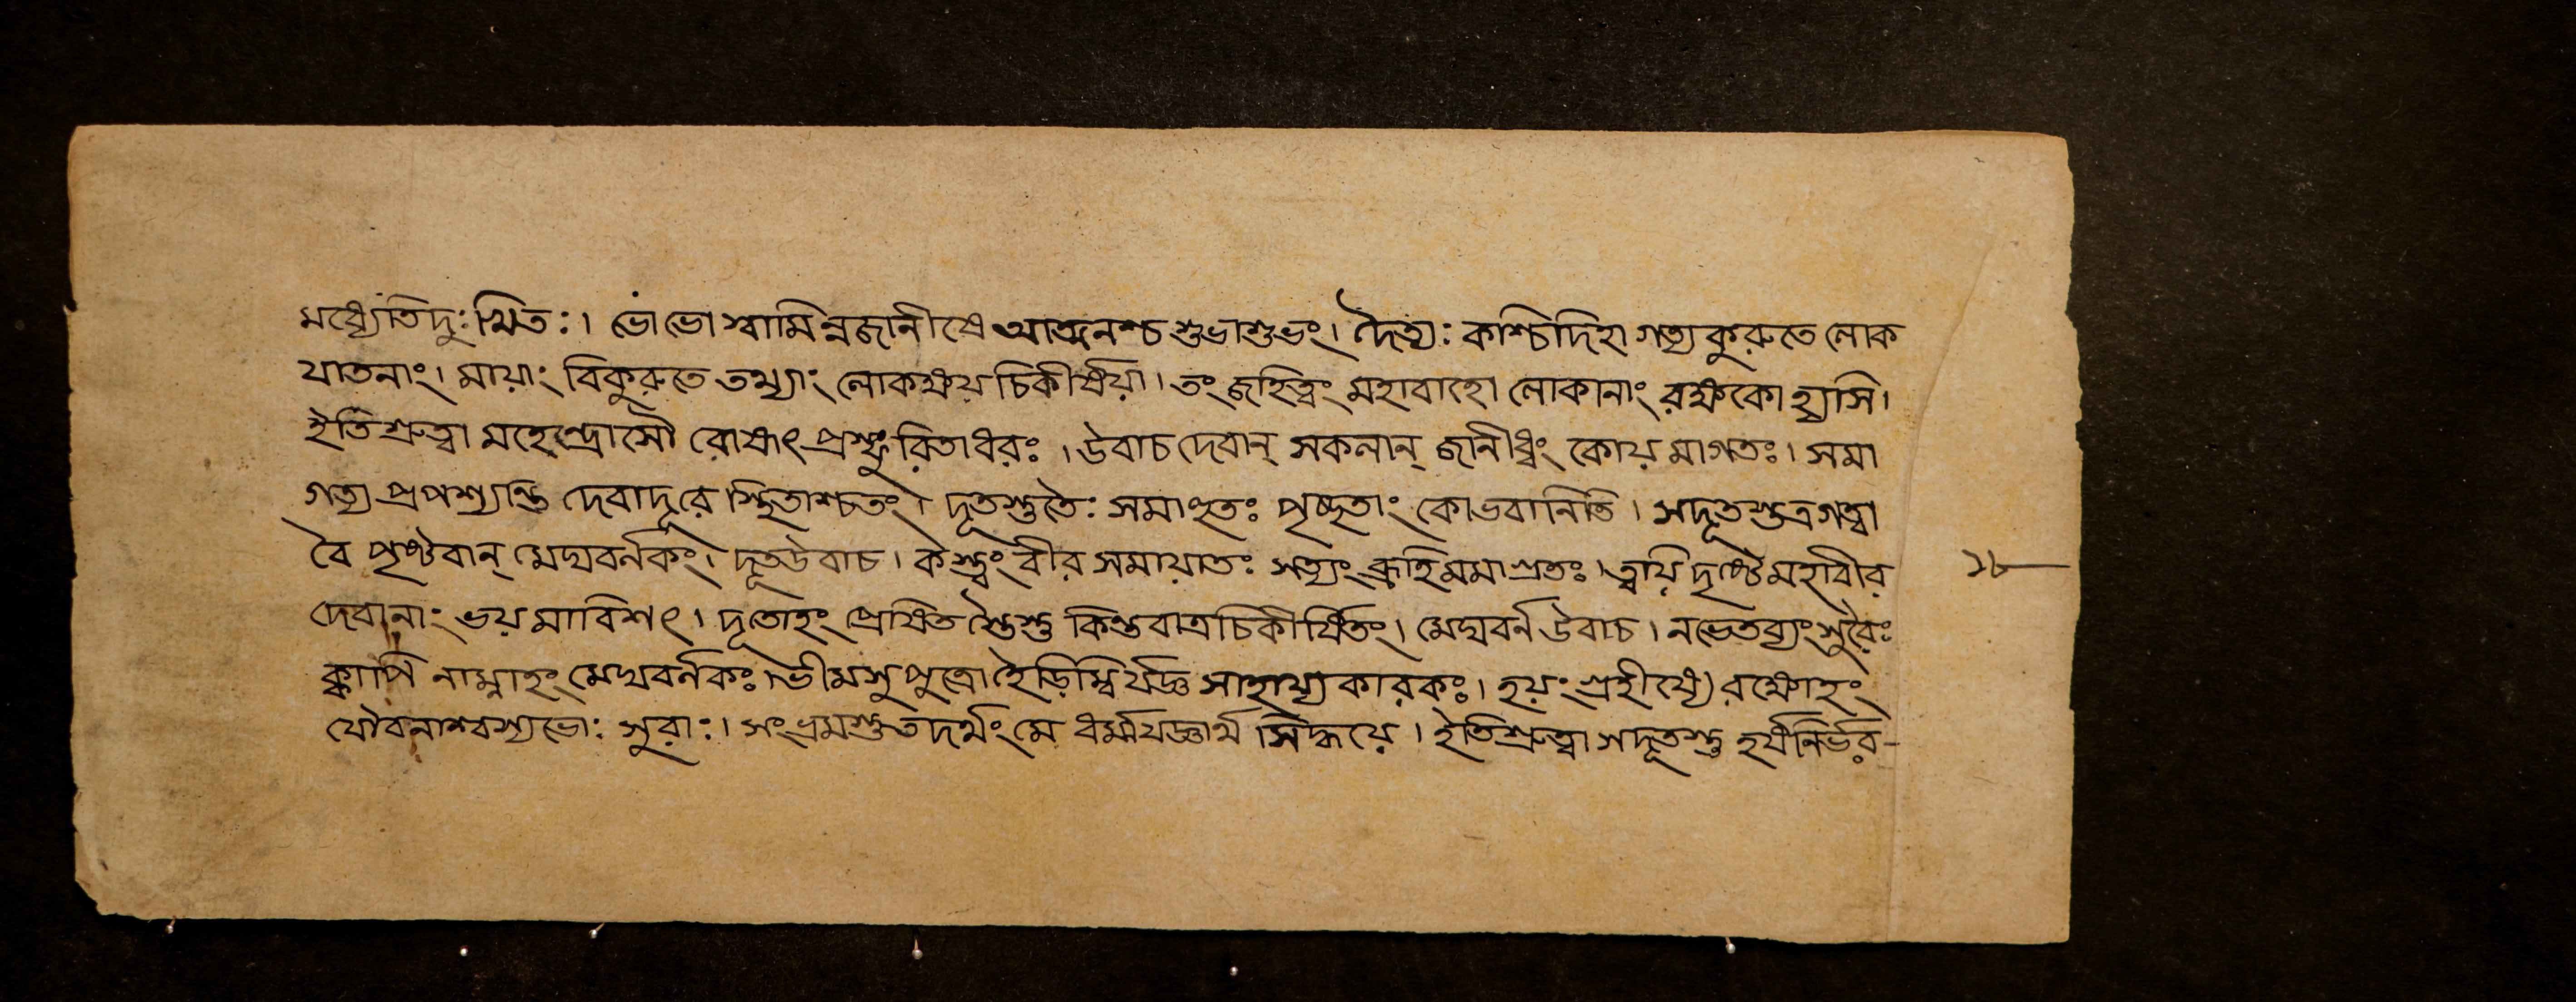 মধ্যেতিদুঃখিতঃ। ভোভো স্বামিন্নজানীষে আত্মনশ্চ শুভাশুভং। দৈত্যঃ কশ্চিদিহা গত্য কুরুতে লোক
যাতনাং। মায়াং বিকুরুতে তথ্যাং লোকক্ষয় চিকীর্ষয়া। তং জহিত্বং মহাবাহো লোকানাং রক্ষকো হ্যসি।
ইতিশ্রুত্বা মহেন্দ্রোসৌ রোষাৎ প্রস্ফুরিতাধরঃ। উবাচ দেবান্ সকলান্ জানীধ্বং কোয়মাগতঃ। সমা
গত্য প্রপশ্যন্তি দেবাদূরে স্থিতাশ্চতং। দূতস্তুতৈঃ সমাহূতঃ পৃচ্ছতাং কোভবানিতি। সদূতস্তত্রগত্বা
বৈ পৃষ্টবান্ মেঘবর্নকং। দূতউবাচ। কস্ত্বং বীর সমায়াতঃ সত্যং ব্রূহিমমাগ্রতঃ। ত্বয়ি দৃষ্টেমহাবীর
দেবানাং ভয়মাবিশৎ। দূতোহং প্রেষিত স্তৈস্তু কিন্তবাত্রচিকীর্ষিতং। মেঘবর্ন উবাচ। নভেতব্যং সুরৈঃ
ক্বাপি নাম্নাহং মেঘবর্নকঃ। ভীমসুপুত্রো হৈড়িম্বির্যজ্ঞ সাহায্যকারকঃ। হয়ং গ্রহীষ্যে রক্ষোহং
যৌবনাশ্বস্যভোঃ সুরাঃ। সংভ্রমস্তুতদর্থং মে ধর্ম্মযজ্ঞার্থ সিদ্ধয়ে। ইতিশ্রুত্বা সদূতস্তু হর্ষনির্ভর-
১৮